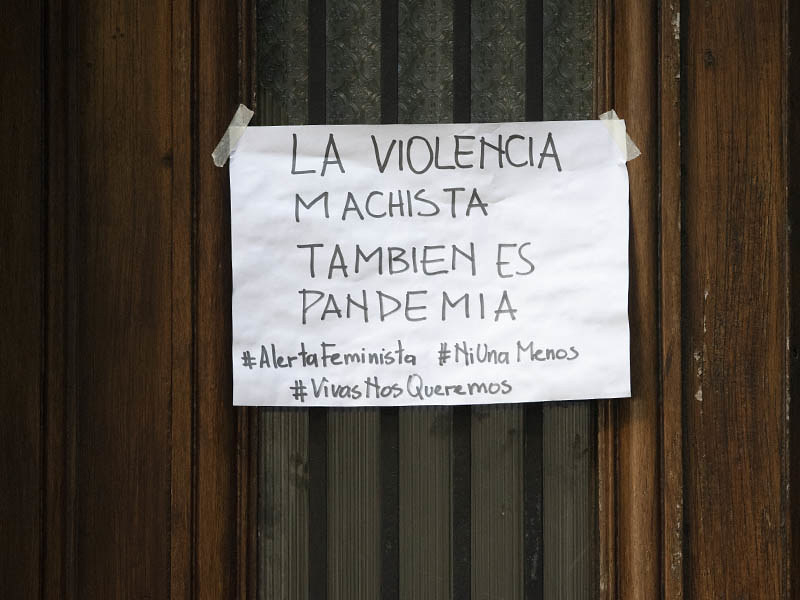 LA VIOLENCIA
MACHISTA
TAMBIEN ES
PANDEMIA
#AlertaFeminista #NiUnaMenos
#VivasNosQueremos